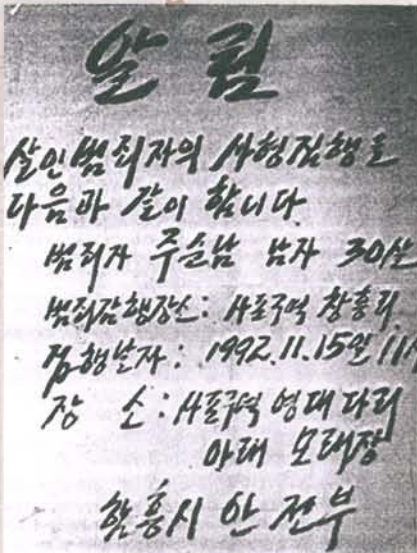 알림
살인범죄자의 사형집행을
다음과 같이 합니다.
범죄자 주순남 남자 30살
범죄감행장소: 사포구역 창흥리
집행날자: 1992.11.15일 11
장 소: 사포구역 영대다리
아래 모래장
함흥시 안전부